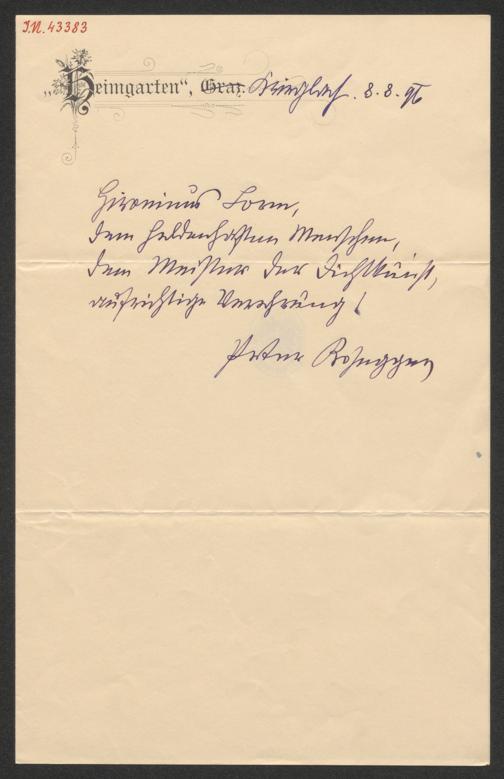 I.N. 43383
„Heimgarten“, Graz. Krieglach. 8.8.96
Hieronimus Lorm,
dem heldenhaften Menschen,
dem Meister der Dichtkunst,
aufrichtige Verehrung!
Peter Rosegger